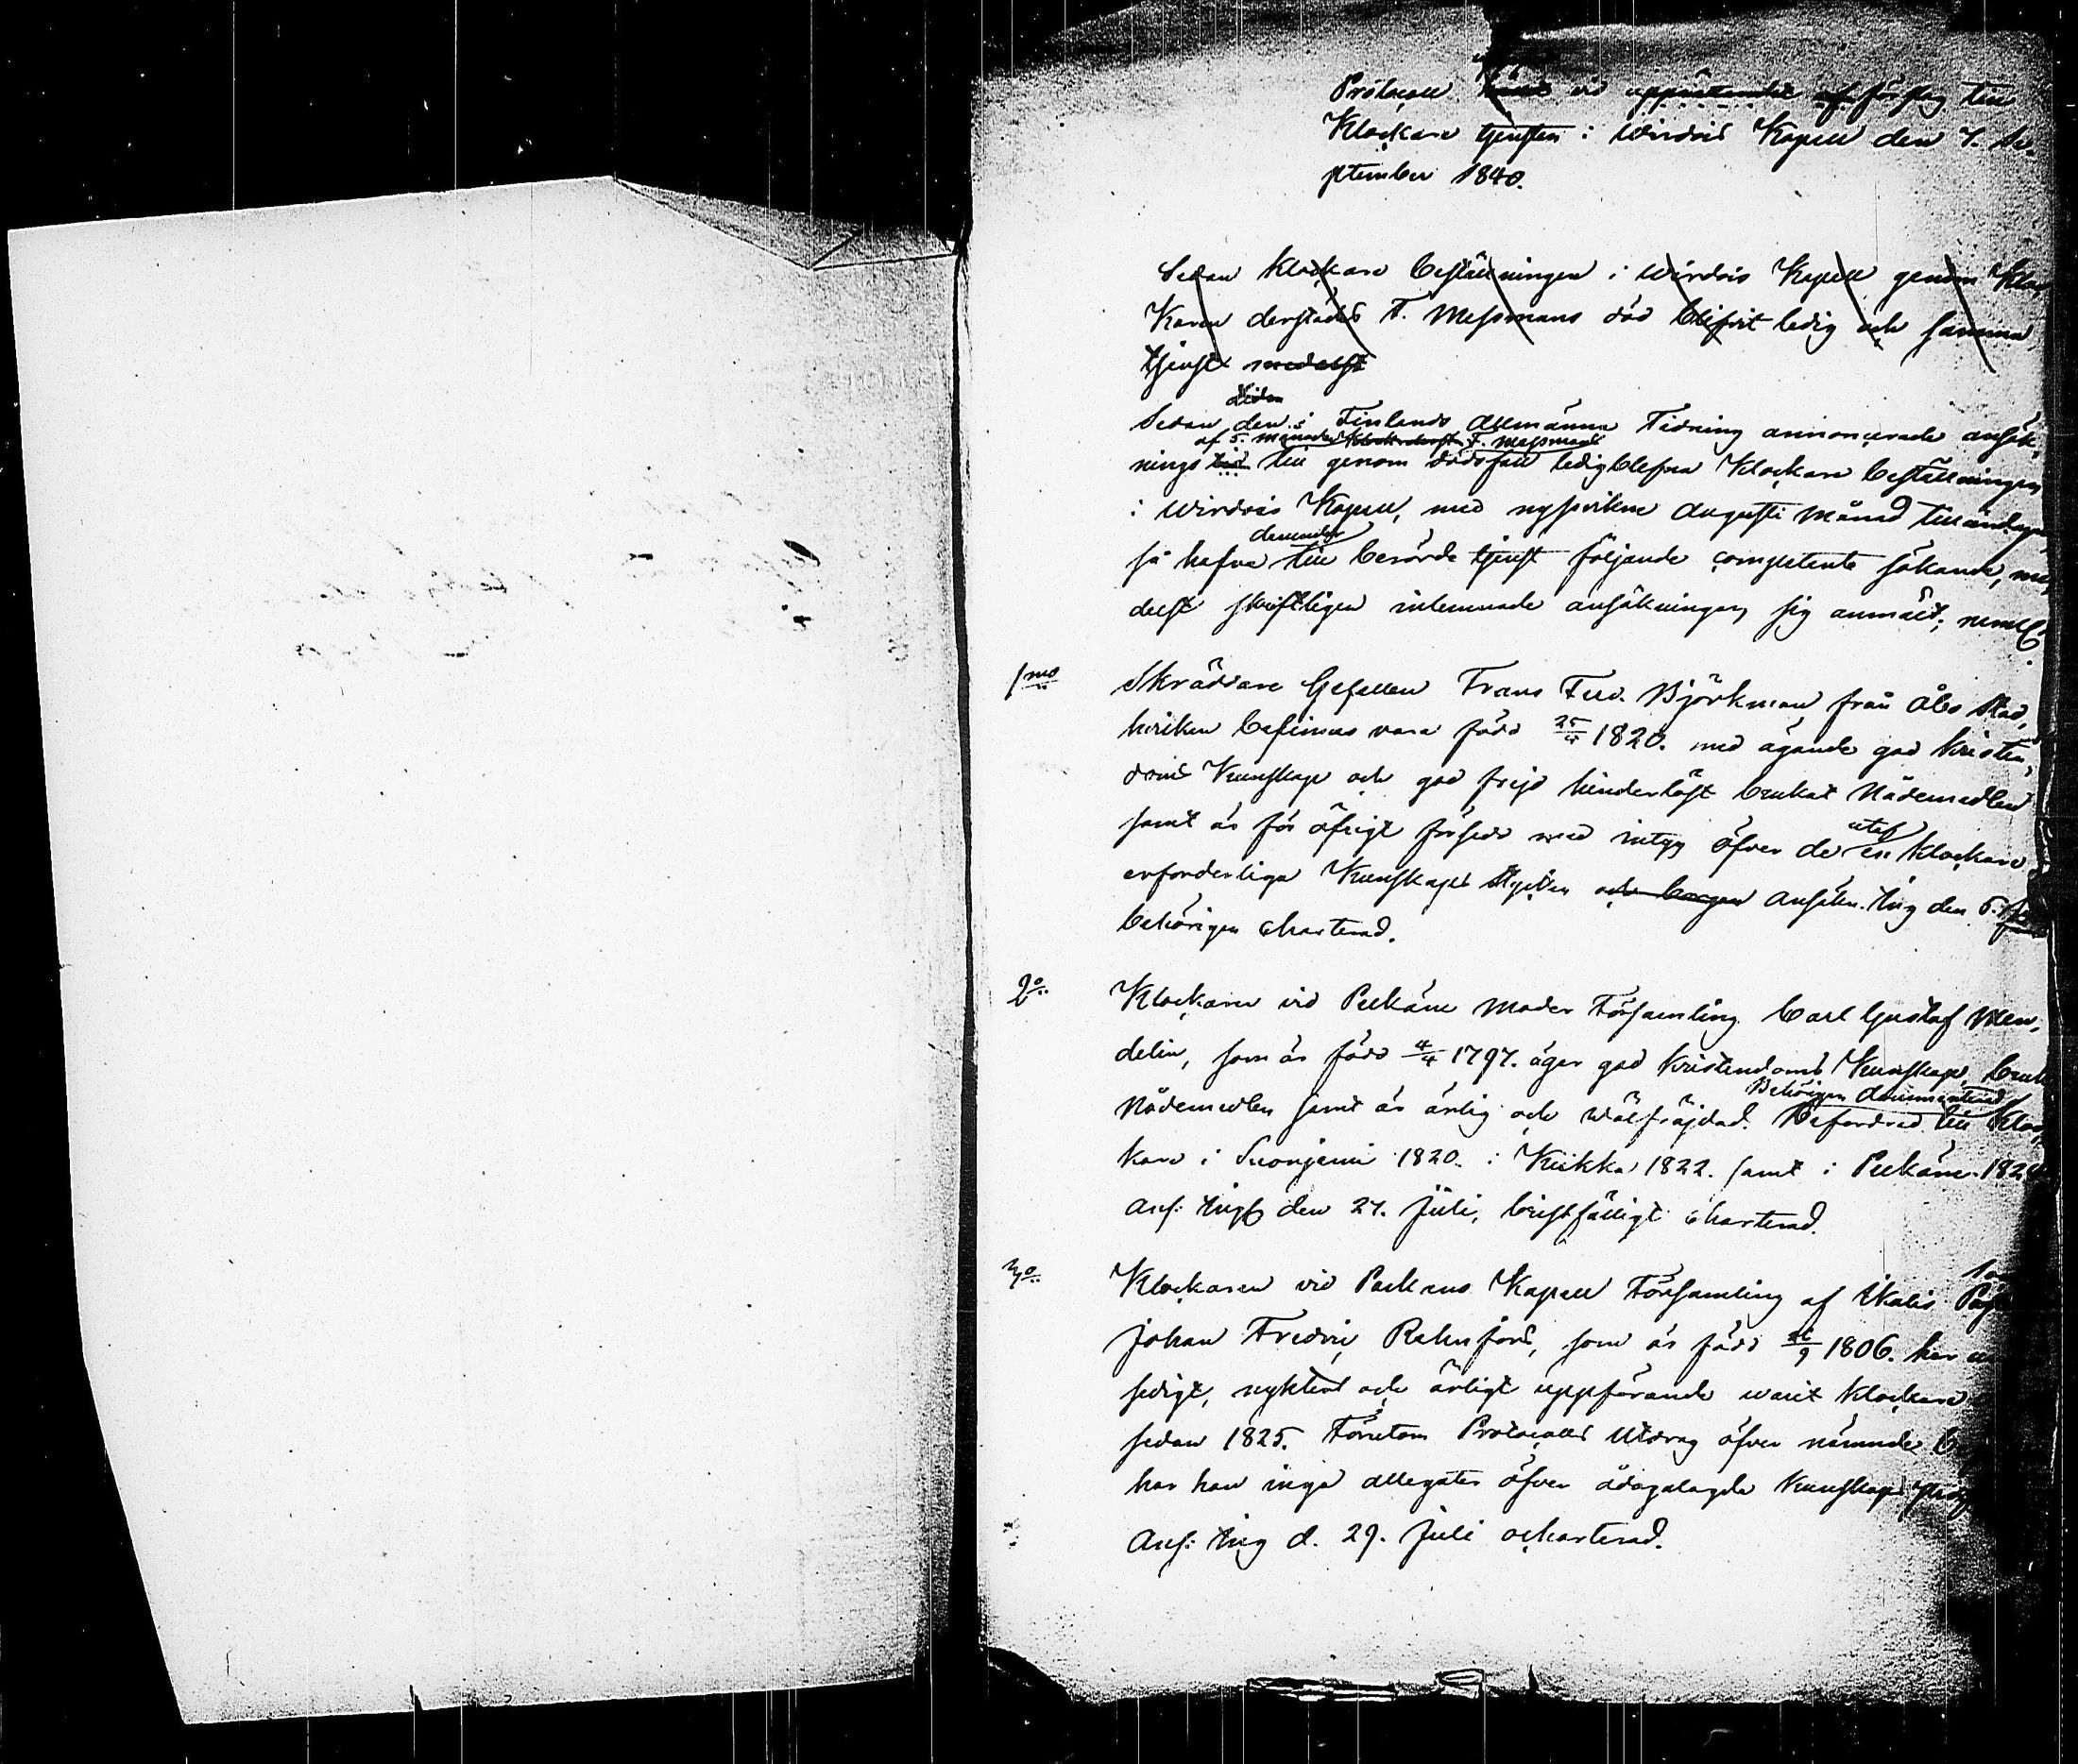 Protocoll vid upprättandet af förslag till
Klockare tjensten i Wirdois Kapell den 7. Se-
ptember 1840.
Sedan Klockare beställningen i Wirdois Kapell genom Kloc
karen derstädes F. Messmans död blifvit ledig och samma
tjenst medelst
tiden
Sedan den i Finlands Allmänna Tidning annoncerade ansök-
af 5. månader Klockaren F. Messmans
nings tid till genom dödsfall ledigblefna Klockare beställningen
i Wirdois Kapell, med nysvikne Augusti månad tilländagått
så hafva till berörde tjenst följande competente sökande, me-
delst skriftligen inlemnade ansökningar, sig anmält; neml.
1mo Skräddare Gesällen Frans Ferd. Björkman från Åbo stad,
hvilken befinnes vara född 25/4 1820. med ägande god kristen-
doms Kunskap och god frejd hinderlöst brukat Nådemedlen
samt är för öfrigt försedd med intyg öfver de en Klockare
erforderliga Kunskaps stycken och borgen Ansökn. ing den 5.
behörigen charterad.
2o Klockaren vid Pelkäne Moder Församling Carl Gustaf Wen-
delin, som är född 4/4 1797. äger god Kristendoms Kunskap, bruk
Behörigen documenterad
Nådemedlen samt är ärlig och wälfräjdad. Befordrad till Kloc
kare i Suonjemi 1820. i Kiikka 1822. samt i Pelkäne 182
Ans: ing den 27. Juli, bristfälligt charterad.
3o Klockaren vid Parkano Kapell Församling af Ikalis
Johan Fredric Rehnfors, som är född /9 1806. har
sedigt, nyktert och ärligt uppförande warit Klockare
sedan 1825. Förutom Protocolls Utdrag öfver nämnde
har han inga allegater öfver ådagalagda Kunskaps
Ans: ing d. 29. Juli ocharterad.